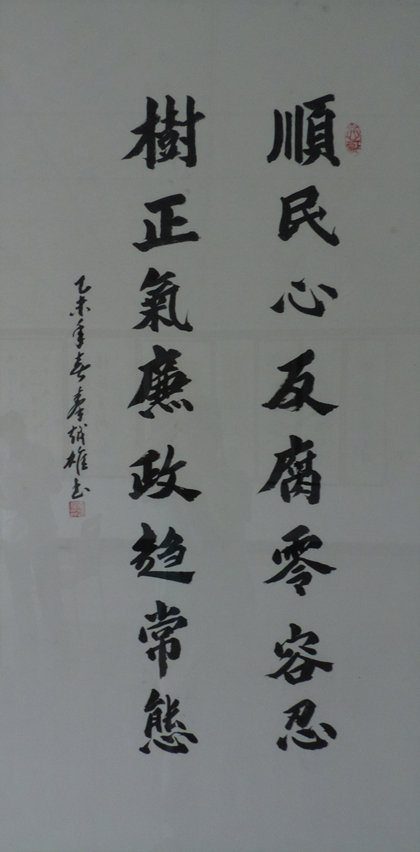 順民心反腐零容忍
樹正氣廉政趋常態
乙未年春秦越雄书